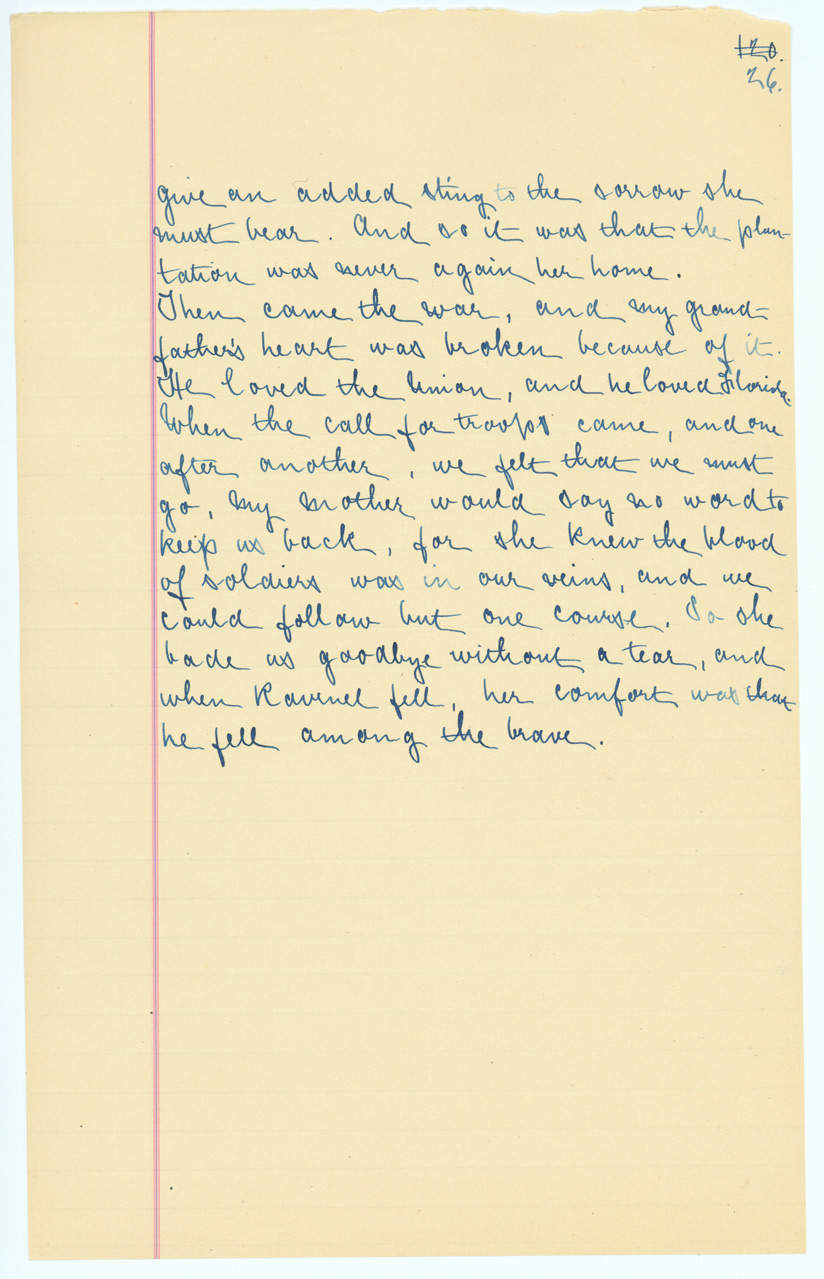 120.
26.
give an added sting to the sorrow she
must bear. And so it was that the plan-
tation was never again her home.
Then came the war, and my grand-
father's heart was broken because of it.
He loved the Union, and he loved Florida.
When the call for troops came, and one
after another, we felt that we must
go, my mother would say no word to
keep us back, for she knew the blood
of soldiers was in our veins, and we
could follow but one course. So she
bade us goodbye without a tear, and
when Ravenel fell, her comfort was that
he fell among the brave.